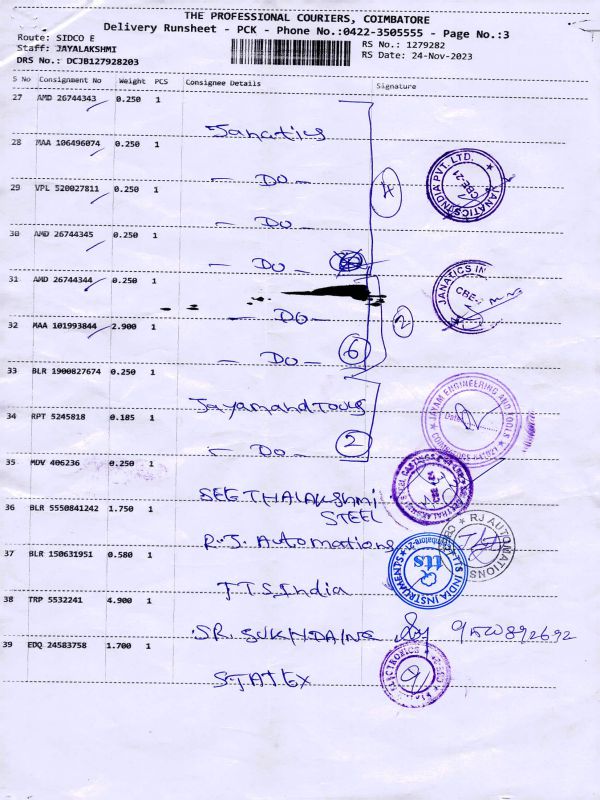 THE PROFESSIONAL COURIERS, COIMBATORE
Delivery Runsheet - PCK - Phone No.:0422-3505555 - Page No.:3
Route: SIDCO E
Staff: JAYALAKSHMI
DRS No.: DCJB127928203
RS No.: 1279282
RS Date: 24-Nov-2023
S No Consignment No Weight PCS Consignee Details Signature
27 AMD 26744343 0.250 1
Janatics
28 MAA 106496074 0.250 1
— Do —
29 VPL 520027811 0.250 1
— Do —
4
JANATICS INDIA PVT. LTD. CBE-21
30 AMD 26744345 0.250 1
— Do —
31 AMD 26744344 0.250 1
— Do —
2
JANATICS IN
CBE-
32 MAA 101993844 2.900 1
— Do — 6
33 BLR 1900827674 0.250 1
Jayamandtools
JAYAM ENGINEERING AND TOOLS
Date
34 RPT 5245818 0.185 1
— Do — 2
35 MDV 406236 0.250 1
SEETHALAKSHMI
STEEL
36 BLR 5550841242 1.750 1
R.J. Automations
RJ AUTOMATIONS
37 BLR 150631951 0.580 1
T.T.S.India
TTS INDIA INSTRUMENTS
tts
38 TRP 5532241 4.900 1
SR. SUKHDAING
39 EDQ 24583758 1.700 1
STATEX
ELECTRONICS